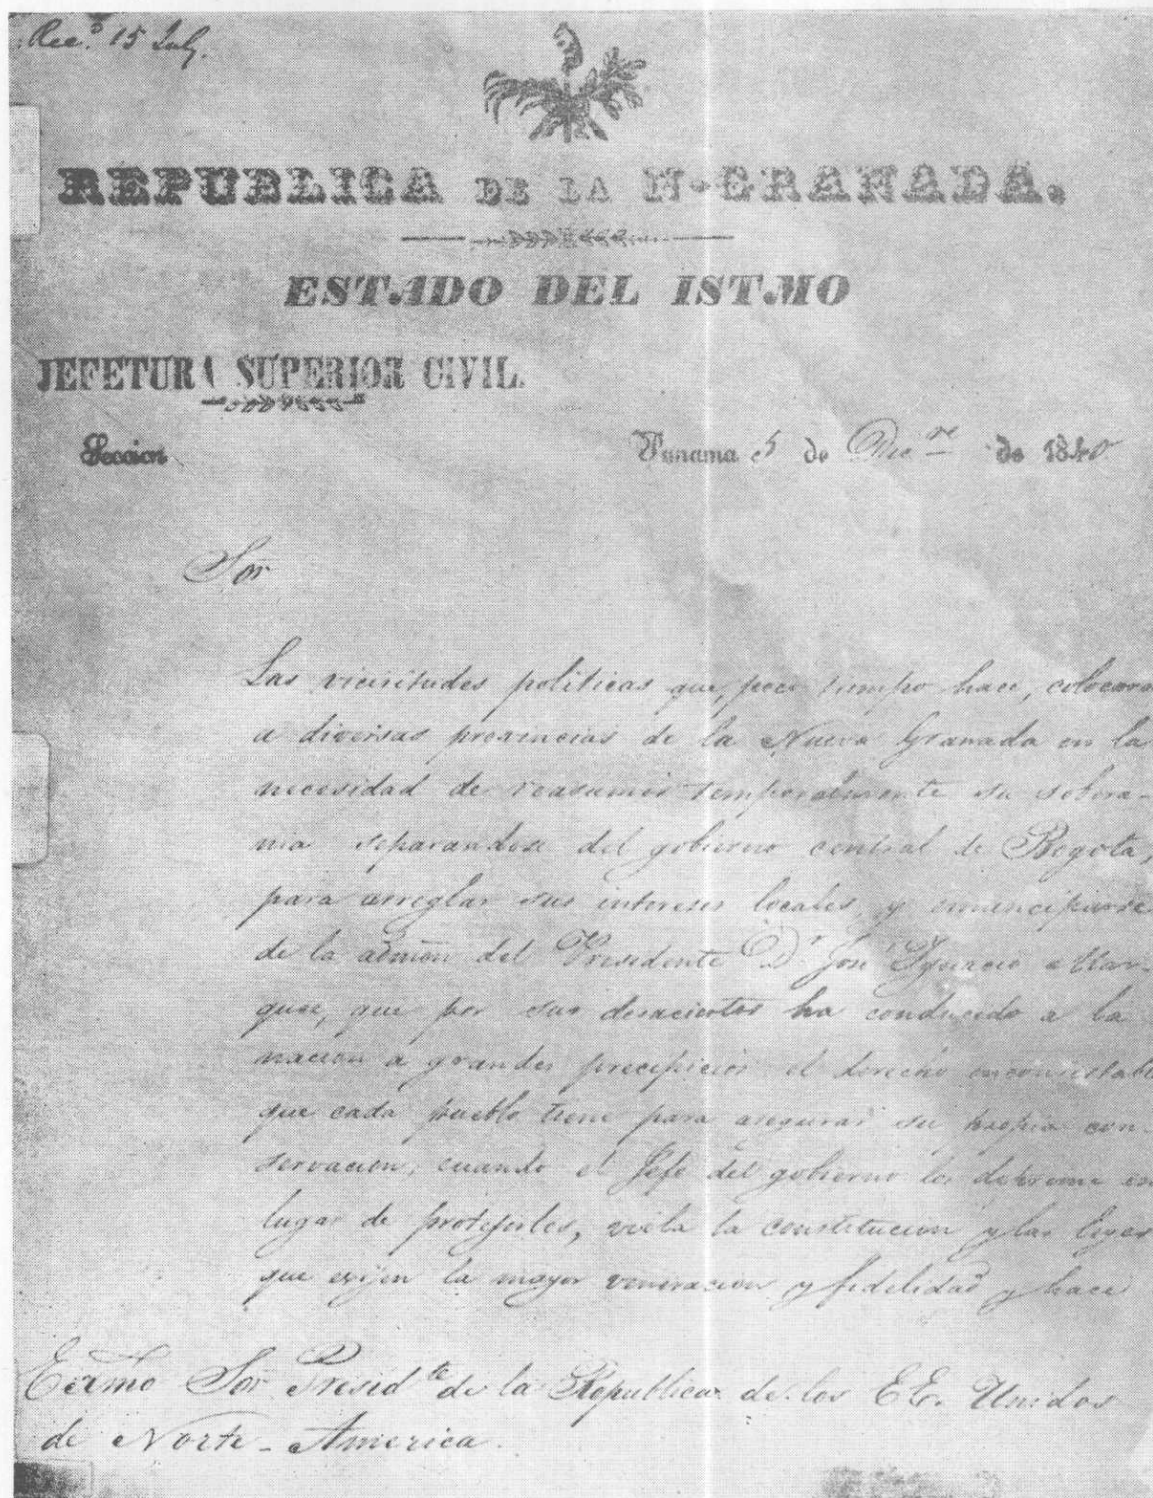 Rec.d 15 July.
REPUBLICA DE LA N-GRANADA.
ESTADO DEL ISTMO
JEFETURA SUPERIOR CIVIL.
Seccion
Panama 5 de Dic.re de 1840
Sor
Las vicisitudes politicas que, poco tiempo hace, colocaron
a diversas provincias de la Nueva Granada en la
necesidad de reasumir temporalmente su sobera-
nia separandose del gobierno central de Bogota,
para arreglar sus intereses locales, y emanciparse
de la admōn del Presidente Dr. José Ygnacio Mar-
quez, que por sus desaciertos ha conducido a la
nacion a grandes precipicios el derecho incontestable
que cada pueblo tiene para asegurar su propia con-
servacion, cuando el Jefe del gobierno los deprime en
lugar de protejerles, viola la constitucion y las leyes
que exijen la mayor veneracion y fidelidad y hace
Exāmo Sor Presid.te de la Republica de los EE. Unidos
de Norte-America.